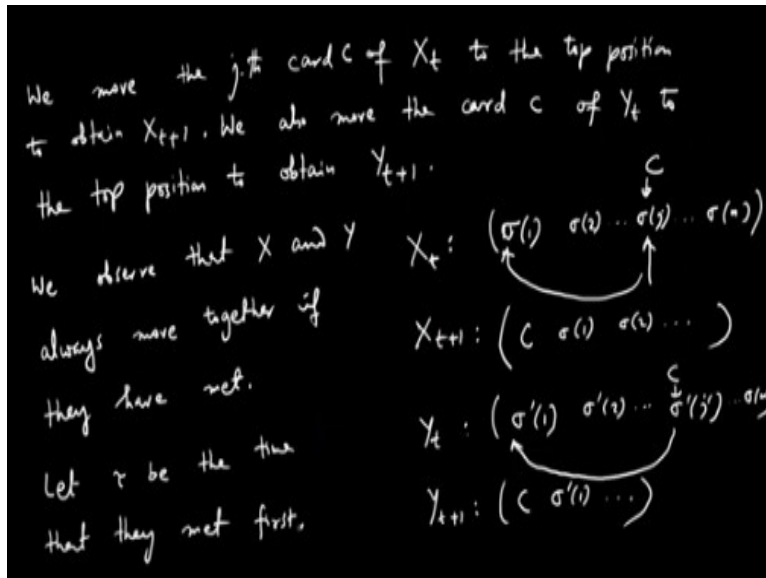 We move the j-th card C of X_t to the top position
to obtain X_{t+1}. We also move the card C of Y_t to
the top position to obtain Y_{t+1}.
We observe that X and Y
always move together if
they have met.
Let τ be the time
that they met first.
C
X_t : (σ(1) σ(2) ... σ(j) ... σ(n))
X_{t+1} : (C σ(1) σ(2) ...)
C
Y_t : (σ'(1) σ'(2) ... σ'(j') ...
Y_{t+1} : (C σ'(1) ...)